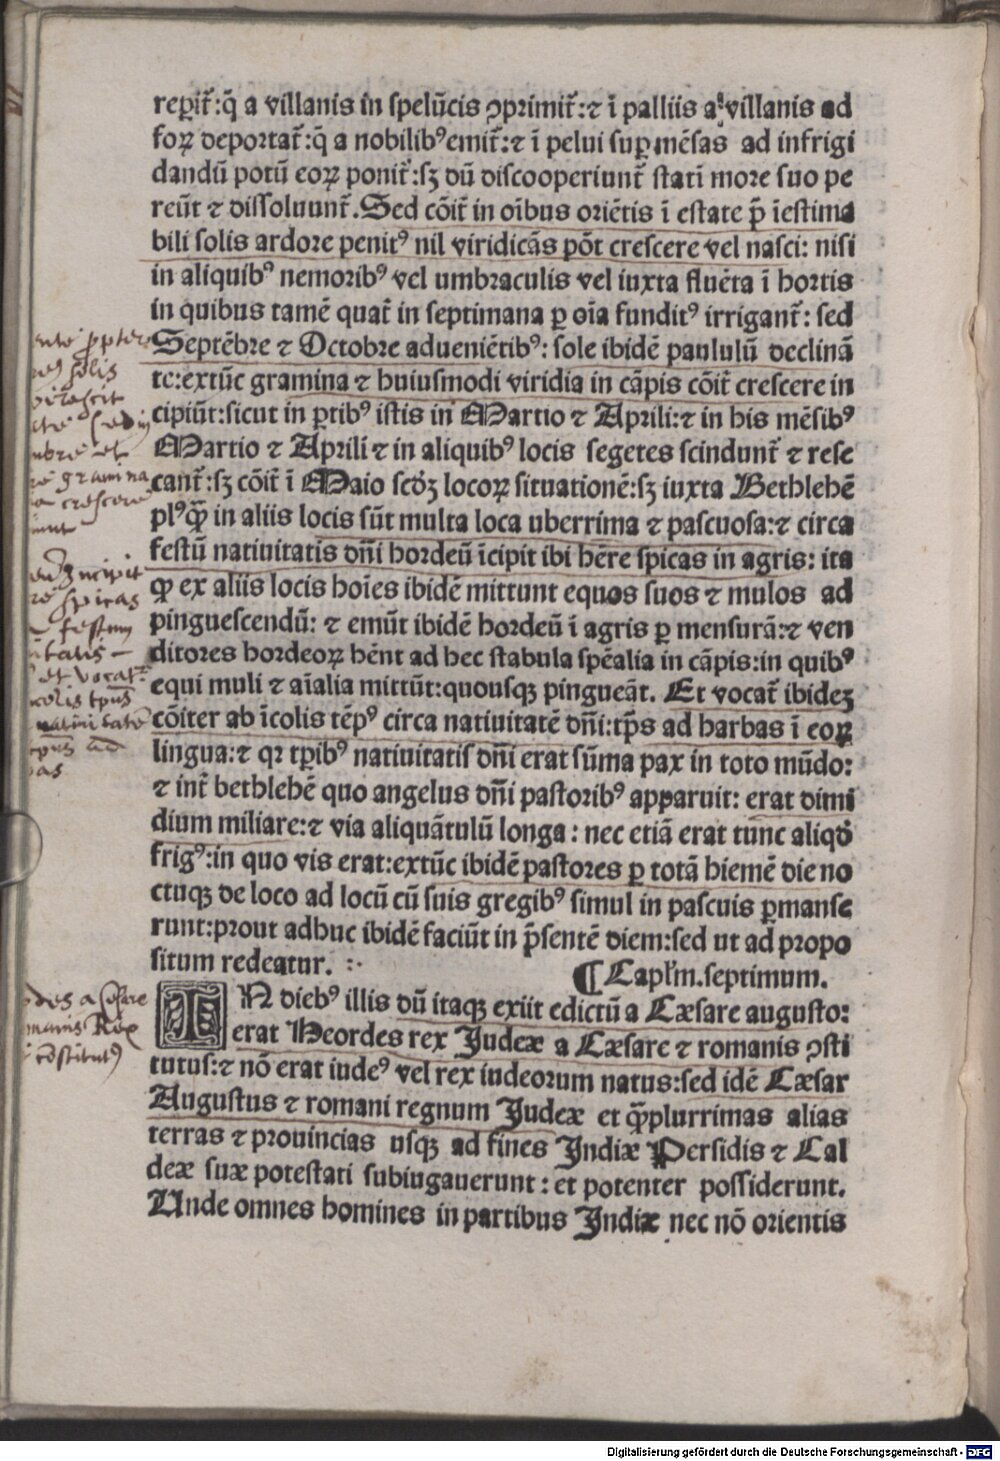 reꝑit᷑:q̄ a villanis in ſpelūcis ꝯprimit᷑:⁊ ī palliis a villanis ad
foꝝ deportat᷑:q̄ a nobilibꝰ emit᷑:⁊ ī pelui suꝑ mēsas ad infrigi
dandū potū eoꝝ ponit᷑:ſꝫ dū diſcooperiunt᷑ ſtatī more ſuo pe
reūt ⁊ diſſoluunt᷑. Sed cōit᷑ in oībus oriētis ī eſtate ꝓ̄ īeſtima
bili ſolis ardore penitꝰ nil viridicās pōt creſcere vel naſci: niſi
in aliquibꝰ nemoribꝰ vel umbraculis vel iuxta fluēta ī hortis
in quibus tamē quat᷑ in ſeptimana ꝑ oīa funditꝰ irrigant᷑: ſed
Septēbre ⁊ Octobre adueniētibꝰ: ſole ibidē paululū declinā
te:extūc gramina ⁊ huiuſmodi viridia in cāpis cōit᷑ creſcere in
cipiūt:ſicut in ꝑtibꝰ iſtis in Martio ⁊ Aprili:⁊ in his mēſibꝰ
Martio ⁊ Aprili ⁊ in aliquibꝰ locis ſegetes ſcindunt᷑ ⁊ reſe
cant᷑:ſꝫ cōit᷑ ī Maio ſcd᷒ꝫ locoꝝ ſituationē:ſꝫ iuxta Bethlehē
plꝰꝙ̄ in aliis locis ſūt multa loca uberrima ⁊ paſcuoſa:⁊ circa
feſtū natiuitatis dn̄i hordeū īcipit ibi hēre ſpicas in agris: ita
ꝙ ex aliis locis hoīes ibidē mittunt equos ſuos ⁊ mulos ad
pingueſcendū: ⁊ emūt ibidē hordeū ī agris ꝑ menſurā:⁊ ven
ditores hordeoꝝ hēnt ad hec ſtabula ſpēalia in cāpis:in quibꝰ
equi muli ⁊ aīalia mittūt:quouſqꝫ pingueāt. Et vocat᷑ ibideꝫ
cōiter ab īcolis tēpꝰ circa natiuitatē dn̄i:tp̄s ad harbas ī eoꝝ
lingua:⁊ qꝛ tꝑibꝰ natiuitatiſ dn̄i erat ſūma pax in toto mūdo:
⁊ int᷑ bethlehē quo angelus dn̄i paſtoribꝰ apparuit: erat dimi
dium miliare:⁊ via aliquātulū longa: nec etiā erat tunc aliqd᷒
frigꝰ:in quo vis erat:extūc ibidē paſtores ꝑ totā hiemē die no
ctuqꝫ de loco ad locū cū ſuis gregibꝰ ſimul in paſcuis ꝑmanſe
runt:prout adhuc ibidē faciūt in p̄ſentē diem:ſed ut ad propo
ſitum redeatur. :·
¶ Capl̄m.ſeptimum.
IN diebꝰ illis dū itaqꝫ exiit edictū a Cæſare auguſto:
erat Heordes rex Judeæ a Cæſare ⁊ romanis ꝯſti
tutus:⁊ nō erat iudeꝰ vel rex iudeorum natus:ſed idē Cæſar
Auguſtus ⁊ romani regnum Judeæ et ꝙ̄plurrimas alias
terras ⁊ prouincias uſqꝫ ad fines Indiæ Perſidis ⁊ Cal
deæ ſuæ poteſtati ſubiugauerunt: et potenter poſſiderunt.
Unde omnes homines in partibus Indiæ nec nō orientis
solis
gramina
crescere
incipit
spicas
festum
et vocat᷑
Rex
Digitalisierung gefördert durch die Deutsche Forschungsgemeinschaft - DFG